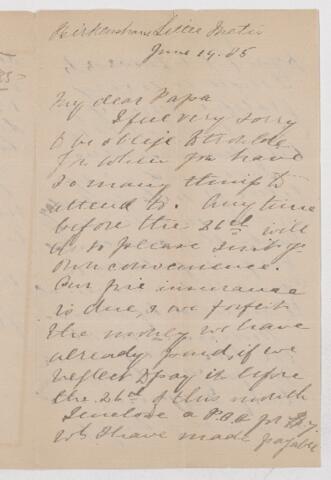 Birkenshaw Little Metis
June 19. 85
My dear Papa
I feel very sorry
to be oblige to trouble
you when you have
so many things to
attend to. Any time
before the 26th will
do so please suit yr
own convenience.
Our fire insurance
is due, & we forfeit
the money we have
already paid, if we
neglect to pay it before
the 26th of this month
I enclose a P.O.O for
wh I have made payable